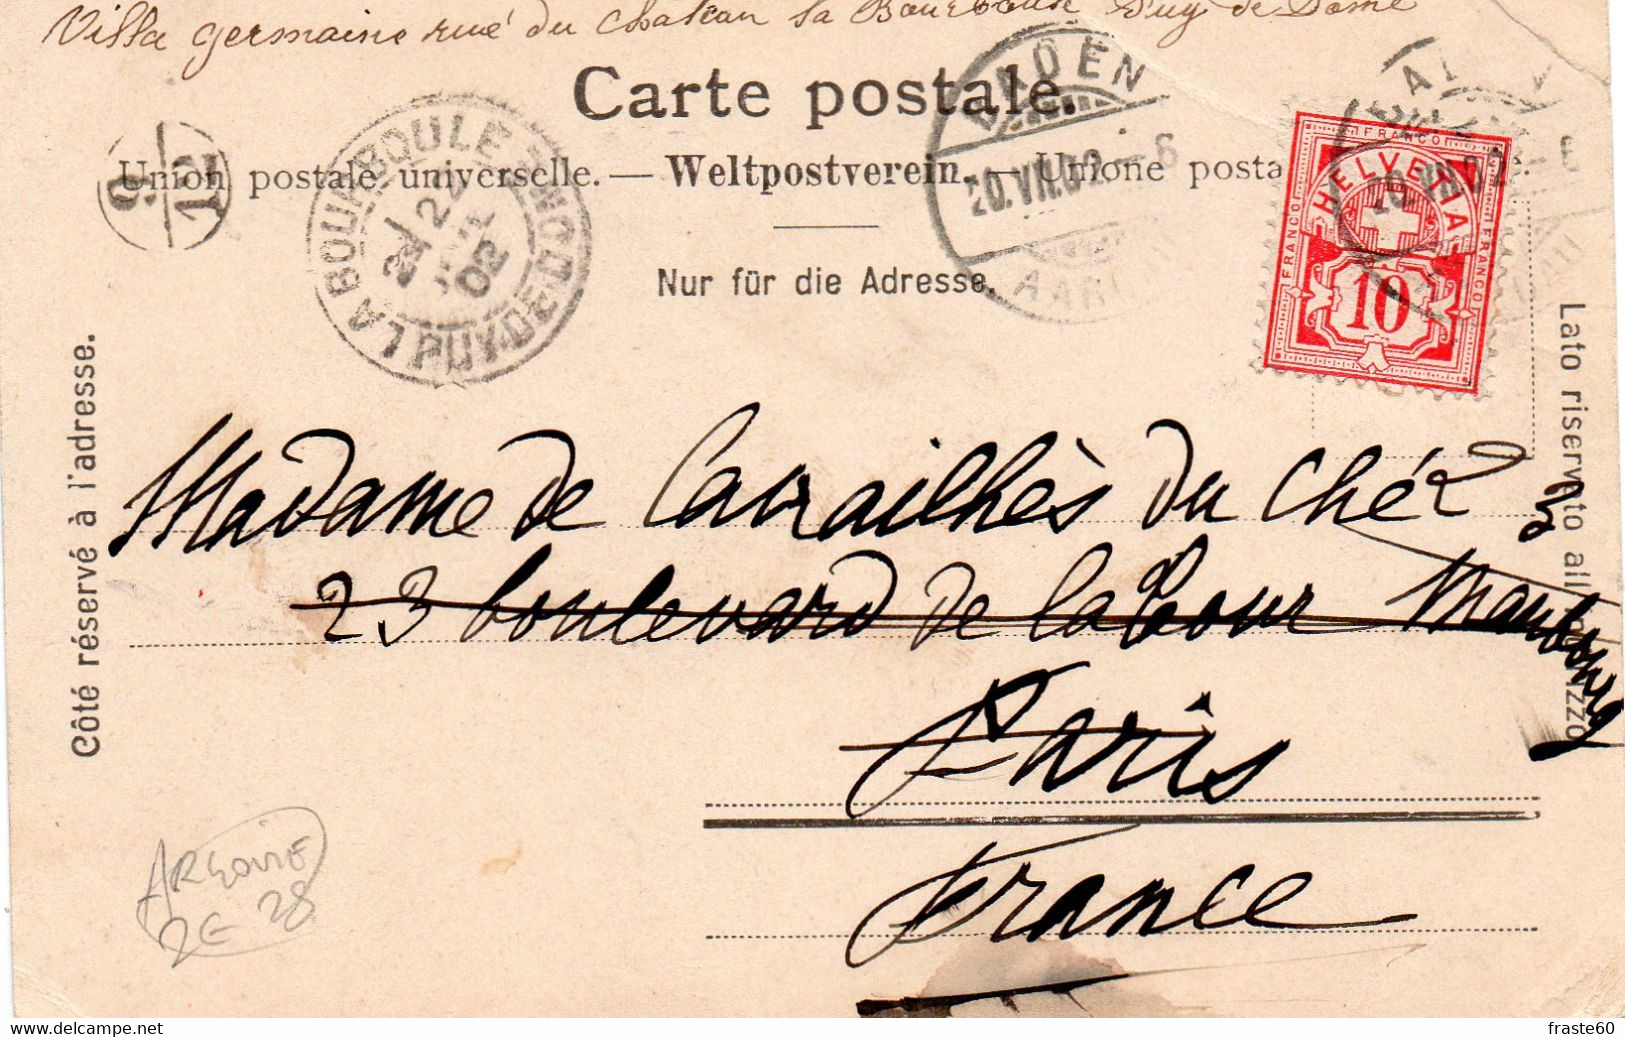 Villa germaine rue du chateau la Bourboule Puy de Dome
Carte postale.
Union postale universelle. — Weltpostverein. — Unione posta
Nur für die Adresse.
Côté réservé à l'adresse.
Lato riservato all' izzo
LA BOURBOULE PUY-DE-DOME
02
BADEN
20.VII.02.-6
AAR
20.VII.02
FRANCO
HELVETIA
FRANCO
FRANCO
10
Madame de Cavailhès du Ché
23 boulevard de la Tour Maubourg
Paris
France
ARGOVIE
2E 28
fraste60